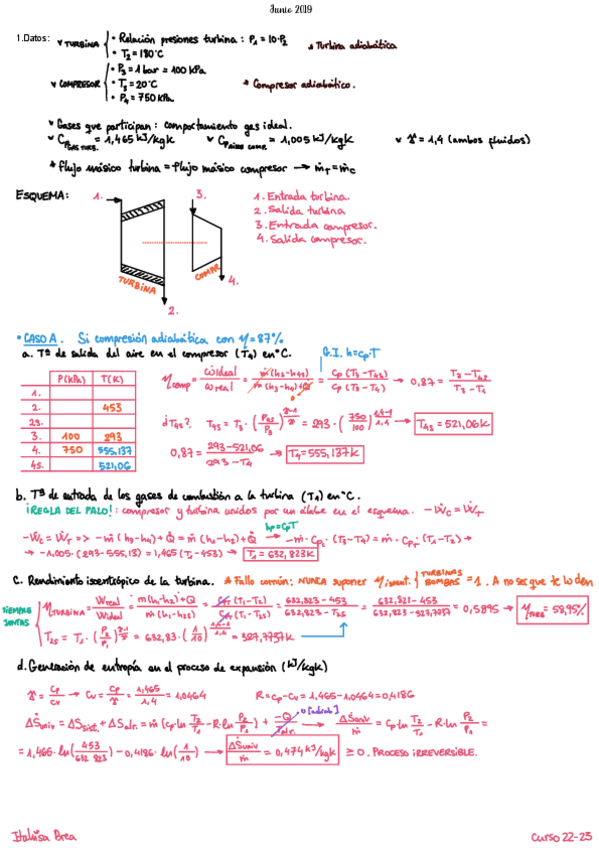 Junio 2019
1.Datos: TURBINA • Relación presiones turbina: P1 = 10·P2 * Turbina adiabática
• T2 = 180°C
COMPRESOR • P3 = 1 bar = 100 kPa
• T3 = 20°C * Compresor adiabático.
• P4 = 750 kPa
Gases que participan: comportamiento gas ideal.
Cp GAS TURB. = 1,465 kJ/kgK Cp AIRE COMP. = 1,005 kJ/kgK γ = 1,4 (ambos fluidos)
* Flujo másico turbina = flujo másico compresor → ṁT = ṁC
ESQUEMA: 1. 3. 1. Entrada turbina.
2. Salida turbina
3. Entrada compresor.
4. Salida compresor.
TURBINA COMPR 4.
2.
• CASO A. Si compresión adiabática con η = 87%
a. Tª de salida del aire en el compresor (T4) en °C. G.I. h = cp·T
P(kPa) T(K)
1.
2. 453
2s.
3. 100 293
4. 750 555,137
4s. 521,06
ηcomp = Ẇideal / Ẇreal = ṁ(h3-h4s) / ṁ(h3-h4)+Q̇ = Cp(T3-T4s) / Cp(T3-T4) → 0,87 =
¿T4s?. T4s = T3·(P4s/P3)^((γ-1)/γ) = 293·(750/100)^((1,4-1)/1,4) → T4s = 521,06K
0,87 = (293-521,06) / (293-T4) → T4 = 555,137K
b. Tª de entrada de los gases de combustión a la turbina (T1) en °C.
¡REGLA DEL PALO!: compresor y turbina unidos por un en el esquema. -ẆC = ẆT
-ẆC = ẆT => -ṁ(h3-h4)+Q̇ = ṁ(h1-h2)+Q̇ → -ṁ·Cpc·(T3-T4) = ṁ·CpT·(T1-T2) →
→ -1.005·(293-555,13) = 1,465(T1-453) → T1 = 632,823K
C. Rendimiento isentrópico de la turbina. * Fallo común: NUNCA suponer ηisent. {TURBINAS BOMBAS = 1. A no ser que te lo den
SIEMPRE JUNTAS
ηTURBINA = Ẇreal / Ẇideal = ṁ(h1-h2)+Q̇ / ṁ(h1-h2s) = Cp(T1-T2) / Cp(T1-T2s) = (632,823-453) / (632,823-T2s) = = 0,5895 → ηTURB = 58,95%
T2s = T1·(P2/P1)^((γ-1)/γ) = 632,83·(1/10)^((1,4-1)/1,4) = 327,7937K
d. Generación de entropía en el proceso de expansión (kJ/kgK)
γ = Cp/Cv → Cv = Cp/γ = 1,465/1,4 = 1,0464 R = Cp-Cv = 1,465-1,0464 = 0,4186
ΔṠuniv = ΔSsist. + ΔSalr. = ṁ(Cp·ln T2/T1 - R·ln P2/P1) + -Q/Talr. → ΔṠuniv/ṁ = Cp·ln T2/T1 - R·ln P2/P1 =
= 1,465·ln(453/632,823) - 0,4186·ln(1/10) → ΔṠuniv/ṁ = 0,474 kJ/kgK ≥ 0. PROCESO IRREVERSIBLE.
Brea Curso 22-23